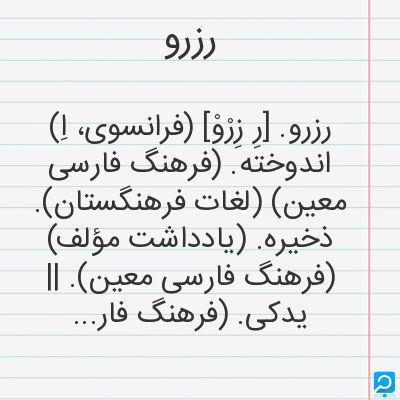 رزرو
رزرو. [رِ زِرْوْ] (فرانسوی، اِ)
اندوخته. (فرهنگ فارسی
معین) (لغات فرهنگستان).
ذخیره. (یادداشت مؤلف)
(فرهنگ فارسی معین). ||
یدکی. (فرهنگ فار...